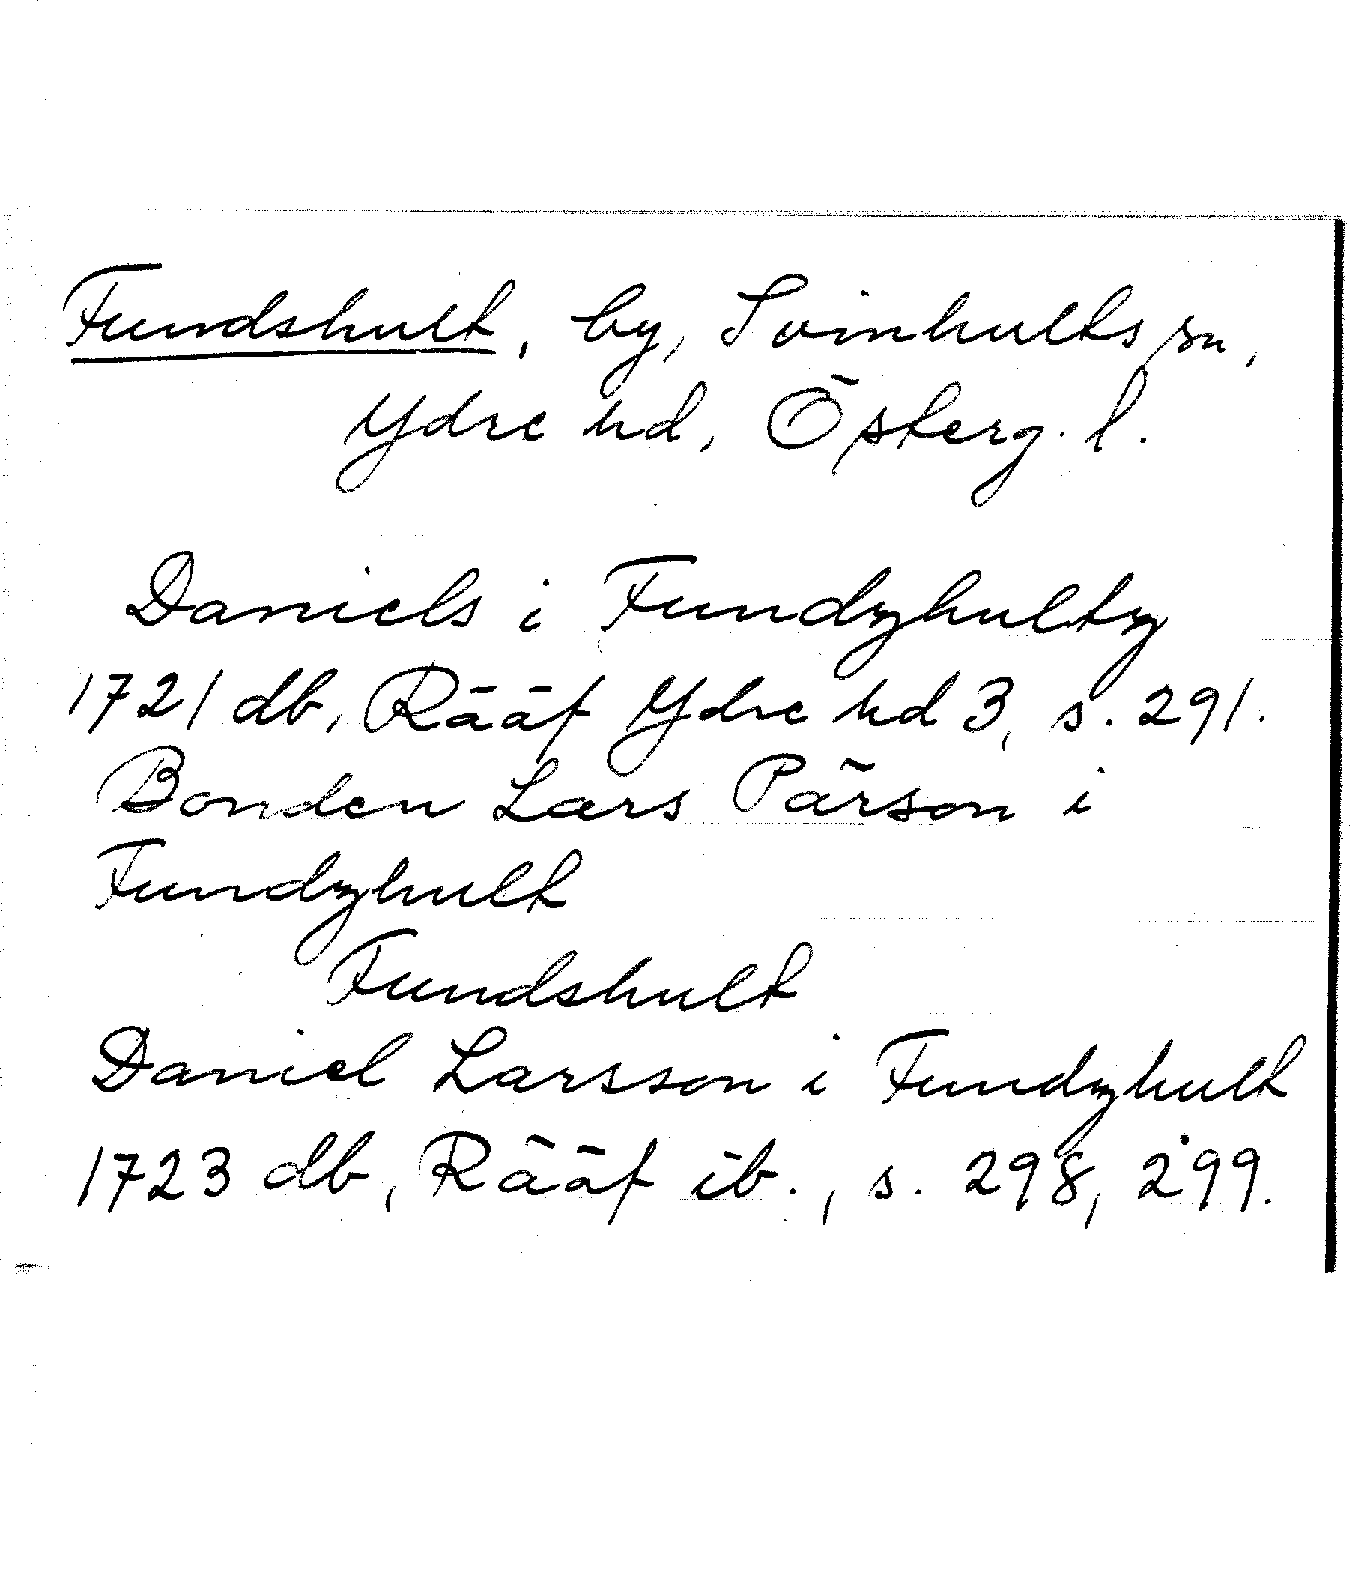 Fundshult, by, Svinhults sn,
Ydre hd, Österg. l.
Daniels i Fundzhultz
1721 db, Rääf Ydre hd 3, s. 291.
Bonden Lars Pärson i
Fundzhult
Fundshult
Daniel Larsson i Fundzhult
1723 db, Rääf ib., s. 298, 299.